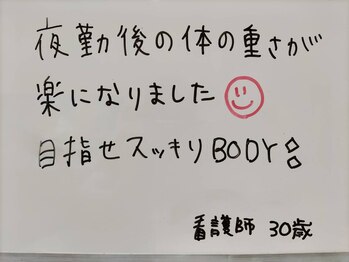 夜勤後の体の重さが
楽になりました
目指せスッキリBODY
看護師 30歳